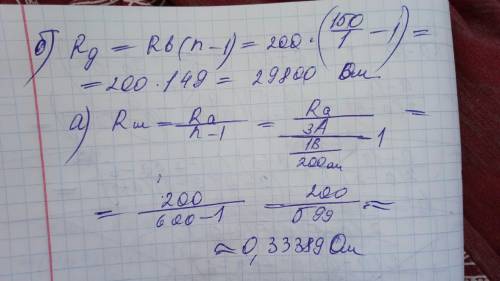 б) Rд = Rв(n-1) = 200 · (150/1 - 1) =
= 200 · 149 = 29800 Ом
а) Rш = Ra/(n-1) = Ra/(3А/(1В/200ом) - 1) =
= 200/(600-1) = 200/599 ≈
≈ 0,33389 Ом